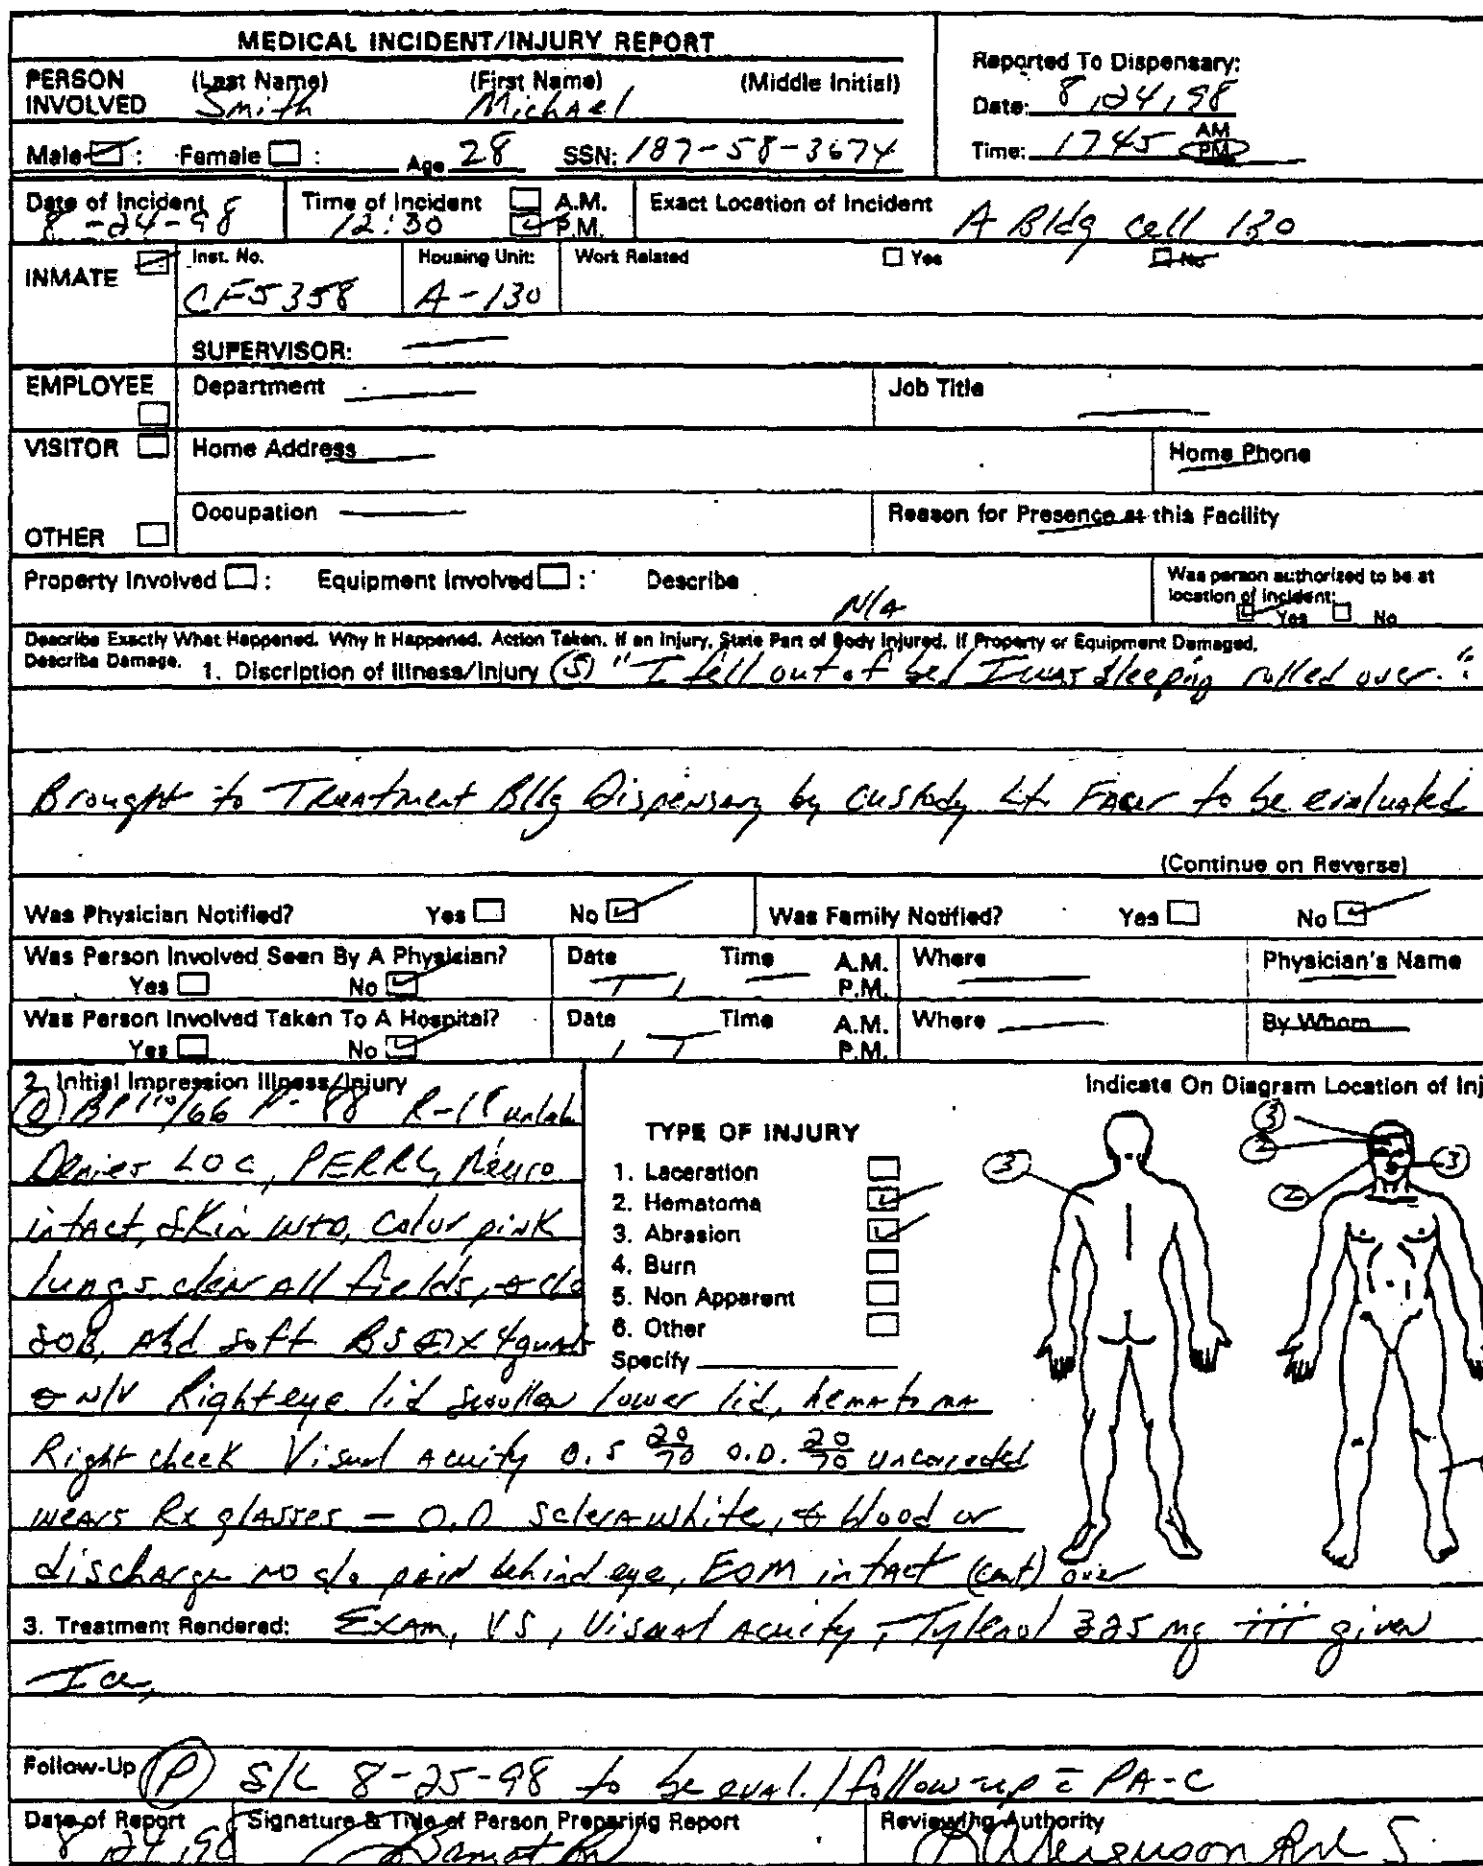 MEDICAL INCIDENT/INJURY REPORT
Reported To Dispensary:
PERSON INVOLVED (Last Name) (First Name) (Middle Initial)
Smith Michael
Date: 8,24,98
Male : Female : Age 28 SSN: 187-58-3674
Time: 1745 AM PM
Date of Incident Time of Incident A.M. P.M. Exact Location of Incident
8-24-98 12:30 A Bldg cell 130
INMATE Inst. No. Housing Unit: Work Related Yes No
CF5358 A-130
SUPERVISOR:
EMPLOYEE Department Job Title
VISITOR Home Address Home Phone
OTHER Occupation Reason for Presence at this Facility
Property Involved : Equipment Involved : Describe N/A Was person authorized to be at location of incident: Yes No
Describe Exactly What Happened. Why It Happened. Action Taken. If an Injury, State Part of Body Injured. If Property or Equipment Damaged,
Describe Damage. 1. Discription of Illness/Injury (S) "I fell out of bed I was sleeping rolled over."
Brought to Treatment Bldg Dispensary by custody Lt. to be evaluated
(Continue on Reverse)
Was Physician Notified? Yes No Was Family Notified? Yes No
Was Person Involved Seen By A Physician? Yes No Date Time A.M. P.M. Where Physician's Name
Was Person Involved Taken To A Hospital? Yes No Date Time A.M. P.M. Where By Whom
2. Initial Impression Illness/Injury
(O) BP 110/66 P-88 R-18 unlab
Denies LOC, PERRL, Neuro
intact, skin W+D, color pink
lungs clear all fields, c/o
SOB, Abd soft BS x 4 quad
N/V Right eye lid swollen lower lid, hematoma
Right cheek Visual acuity O.S 20/70 O.D. 20/70 uncorrected
wears Rx glasses - O.D sclera white, blood or
discharge no c/o pain behind eye, EOM intact (cont) over
TYPE OF INJURY
1. Laceration
2. Hematoma
3. Abrasion
4. Burn
5. Non Apparent
6. Other
Specify
Indicate On Diagram Location of Inj
3
3
2
3
2
3. Treatment Rendered: Exam, VS, Visual acuity, Tylenol 325 mg iii given
Ice,
Follow-Up (P) S/C 8-25-98 to be eval./follow-up c̄ PA-C
Date of Report Signature & Title of Person Preparing Report Reviewing Authority
8,24,98